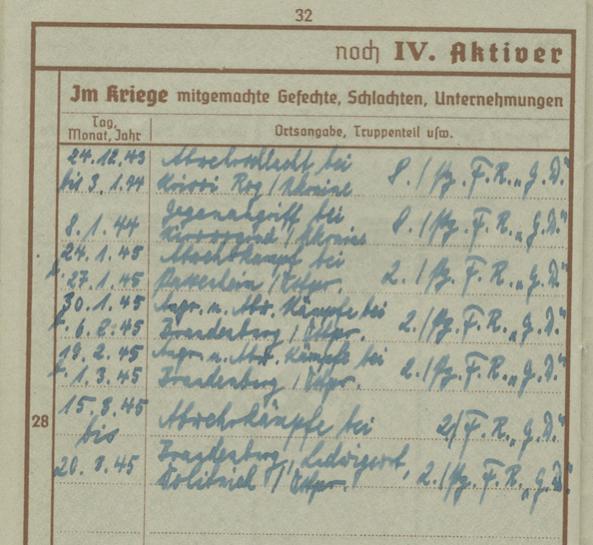 32
noch IV. Aktiver
Im Kriege mitgemachte Gefechte, Schlachten, Unternehmungen
Tag, Monat, Jahr
Ortsangabe, Truppenteil usw.
24.12.43 Abwehrschlacht bei
bis 3.1.44 Kriwoi Rog / Ukraine 8./Pz.F.R. „G.D."
Gegenangriff bei
8.1.44 Kirowograd / Ukraine 8./Pz.F.R. „G.D."
24.1.45 Abwehrkampf bei
27.1.45 / Ostpr. 2./Pz.F.R. „G.D."
30.1.45 Angr. u. Abw. Kämpfe bei
6.2.45 Brandenburg / Ostpr. 2./Pz.F.R. „G.D."
19.2.45 Angr. u. Abw. Kämpfe bei
1.3.45 Brandenburg / Ostpr. 2./Pz.F.R. „G.D."
15.3.45 Abwehrkämpfe bei 2/F.R. „G.D."
28
bis
Brandenburg, Ludwigsort,
20.3.45 / Ostpr. 2./Pz.F.R. „G.D."